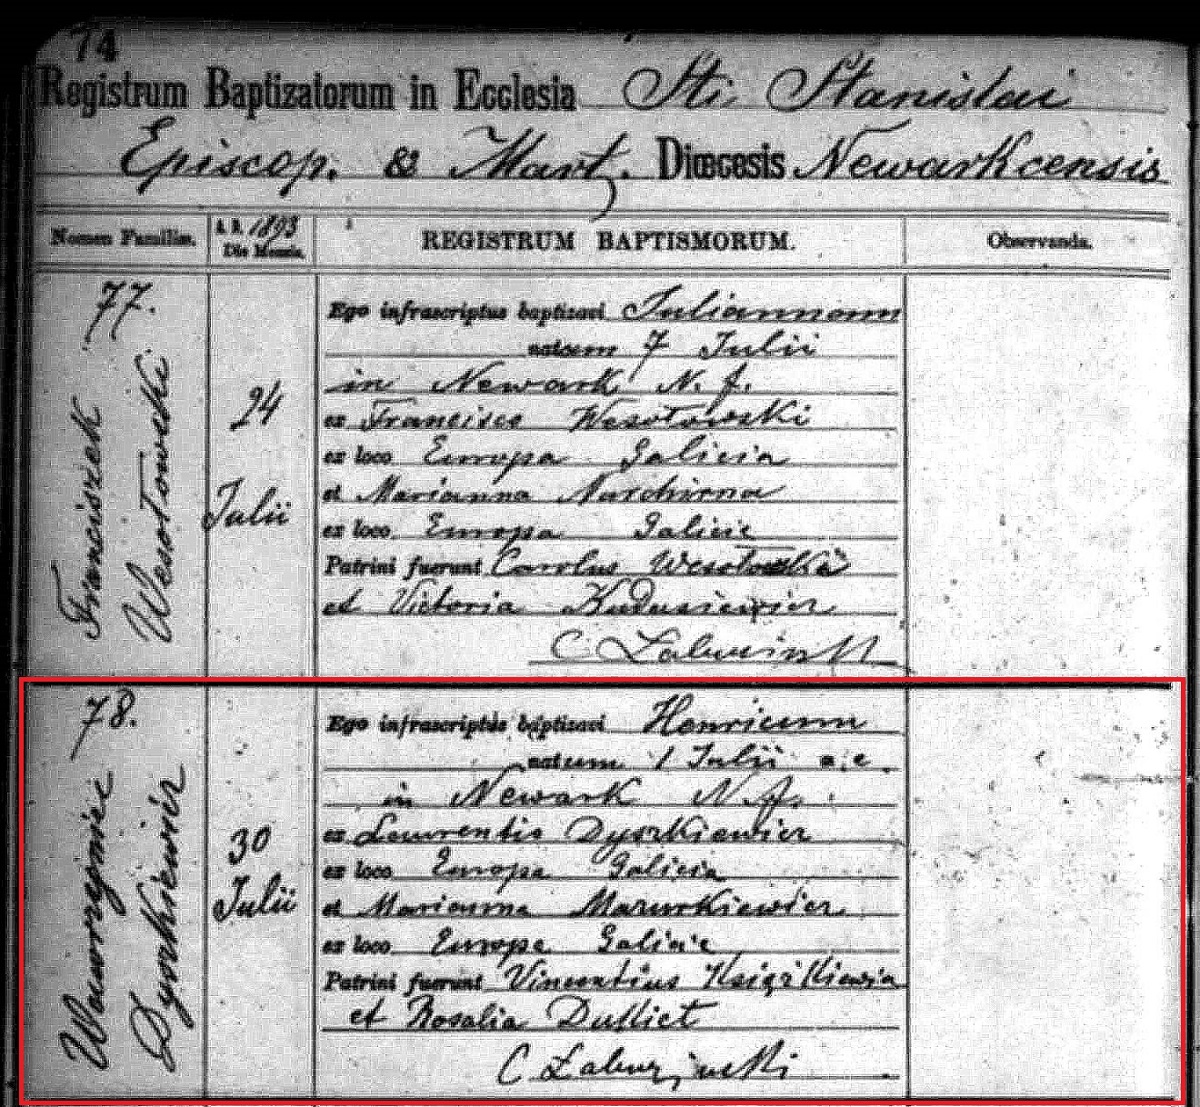 74
Registrum Baptizatorum in Ecclesia Sti Stanislai
Episcop. & Mart. Diœcesis Newarkcensis
Nomen Familiæ.
A. D. 1893
Die Mensis.
REGISTRUM BAPTISMORUM.
Observanda.
77.
Franciszek
Wesołowski
24
Julii
Ego infrascriptus baptizavi Juliannam
natam 7 Julii
in Newark N. J.
ex Francisco Wesołowski
ex loco Europa Galicia
et Marianna
ex loco Europa Galicie
Patrini fuerunt Carolus Wesołowski
et Victoria
C
78.
Wawrzyniec
Dyszkiewicz
30
Julii
Ego infrascriptus baptizavi Henricum
natum 1 Julii a. c.
in Newark N. J.
ex Laurentio Dyszkiewicz
ex loco Europa Galicia
et Marianna Mazurkiewicz
ex loco Europa Galicie
Patrini fuerunt Vincentius
et Rosalia
C